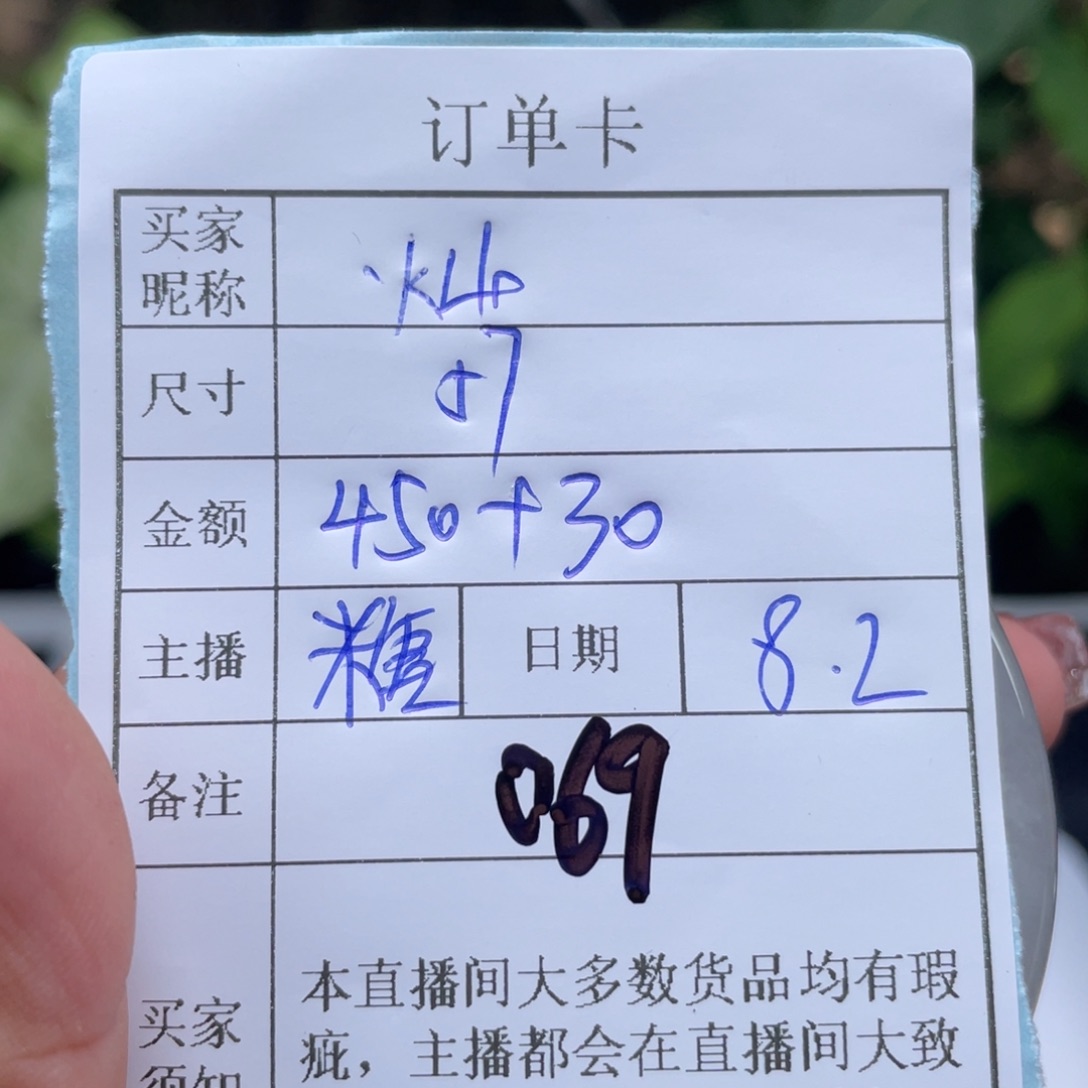 订单卡
买家
昵称
尺寸
57
金额 450+30
主播 糖 日期 8.2
备注 069
买家
须知
本直播间大多数货品均有瑕
疵，主播都会在直播间大致